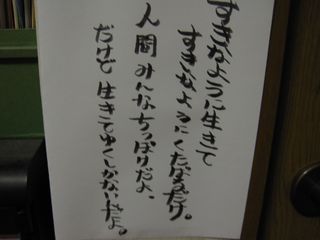 すきなように生きて
すきなようにくたばるだけ。
人間みんなちっぽけだよ、
だけど生きてゆくしかないんだよ。